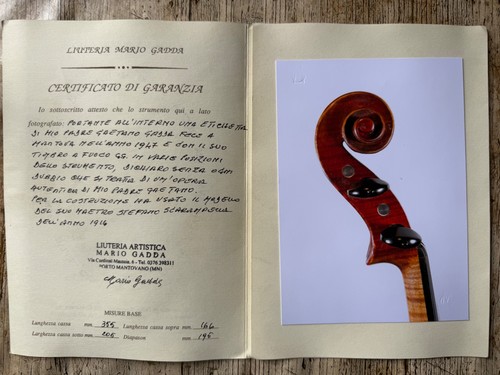 LIUTERIA MARIO GADDA
CERTIFICATO DI GARANZIA
Io sottoscritto attesto che lo strumento qui a lato
fotografato: PORTANTE ALL'INTERNO UNA ETICHETTA
DI MIO PADRE GAETANO GADDA FECE A
MANTOVA NELL'ANNO 1947 E CON IL SUO
TIMBRO A FUOCO GG. IN VARIE POSIZIONI
DELLO STRUMENTO, DICHIARO SENZA OGNI
DUBBIO CHE SI TRATTA DI UN'OPERA
AUTENTICA DI MIO PADRE GAETANO.
PER LA COSTRUZIONE HA USATO IL MODELLO
DEL SUO MAESTRO STEFANO SCARAMPELLA
DELL'ANNO 1914
LIUTERIA ARTISTICA
MARIO GADDA
Via Cardinal Mazzona, 4 - Tel. 0376 398311
PORTO MANTOVANO (MN)
Mario Gadda
MISURE BASE
Lunghezza cassa mm. 355 Larghezza cassa sopra mm. 166
Larghezza cassa sotto mm. 205 Diapason mm. 195